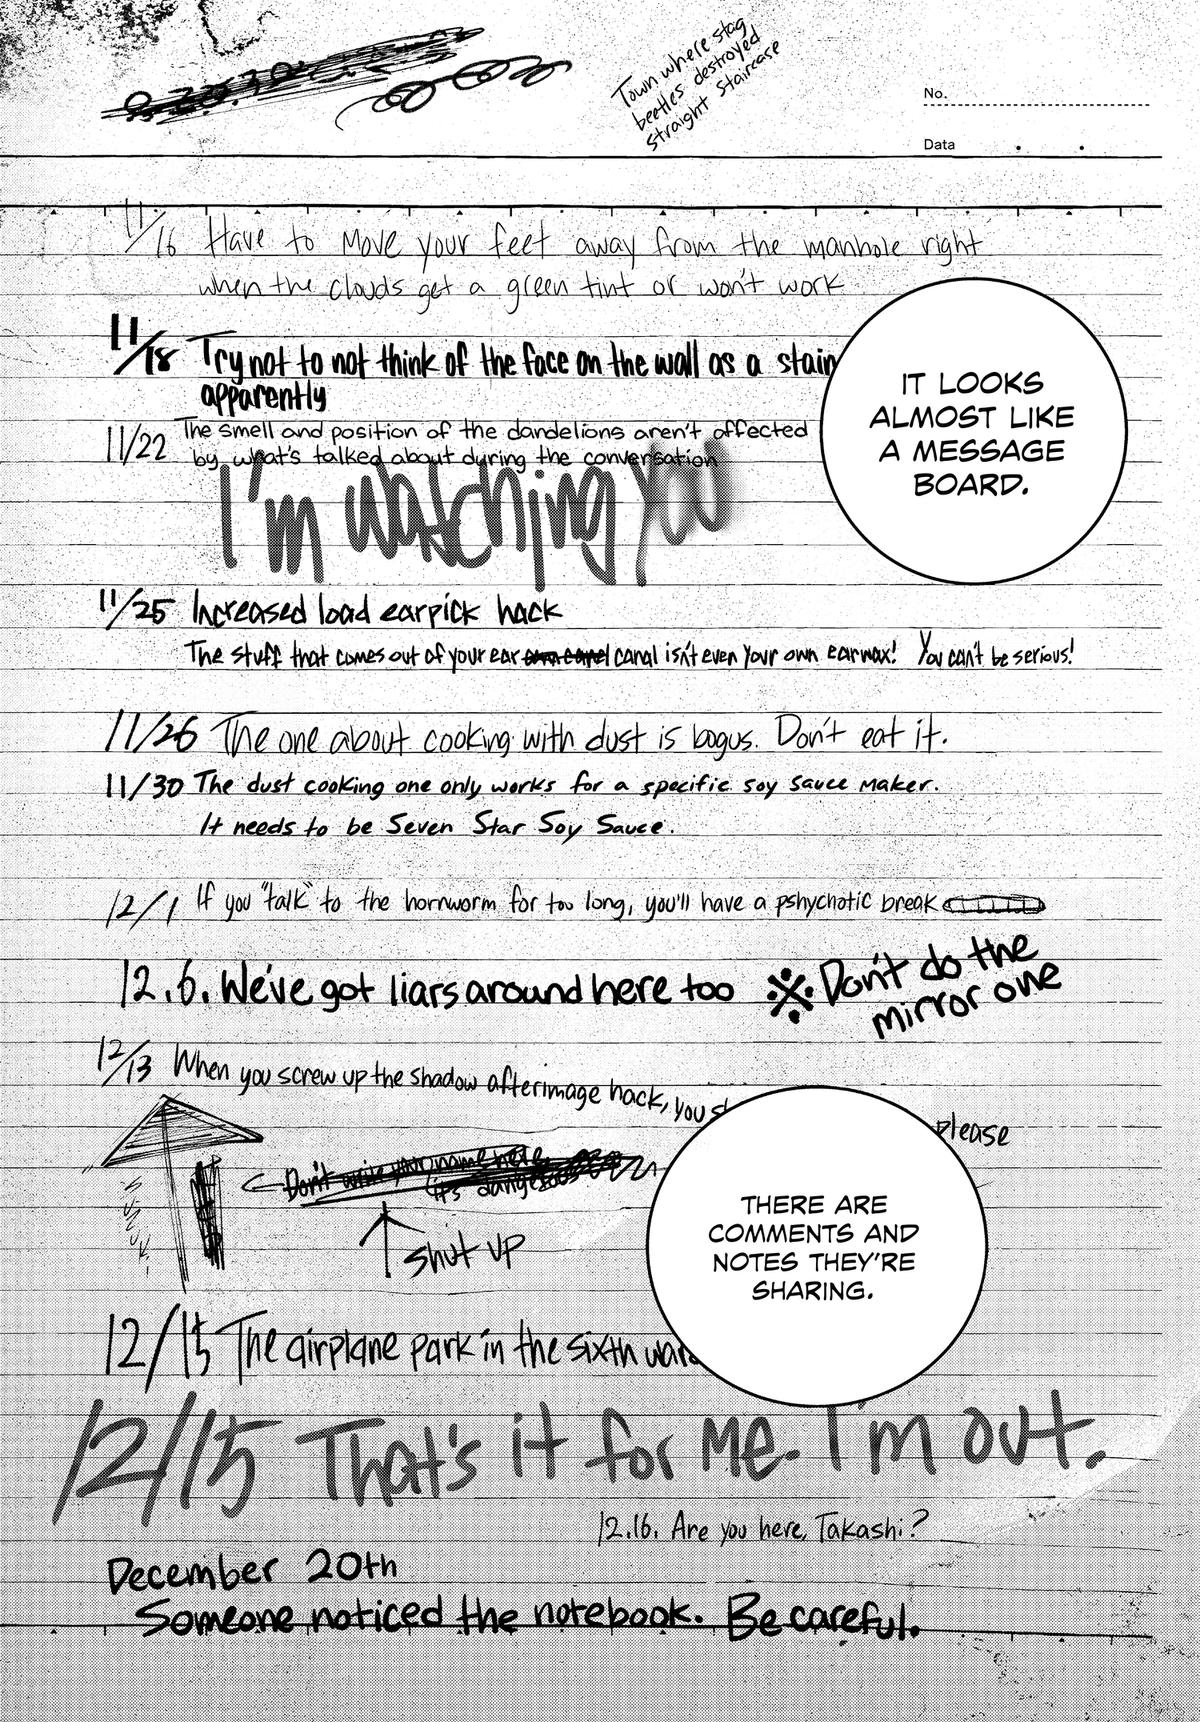 Town where stag
beetles destroyed
straight staircase
No.
Data
11/16 Have to move your feet away from the manhole right
when the clouds get a green tint or won't work
11/18 Try not to not think of the face on the wall as a stain
apparently
IT LOOKS
ALMOST LIKE
A MESSAGE
BOARD.
11/22 The smell and position of the dandelions aren't affected
by what's talked about during the conversation
I'm watching you
11/25 Increased load earpick hack
The stuff that comes out of your ear canal isn't even your own earwax! You can't be serious!
11/26 The one about cooking with dust is bogus. Don't eat it.
11/30 The dust cooking one only works for a specific soy sauce maker.
It needs to be Seven Star Soy Sauce.
12/1 If you "talk" to the hornworm for too long, you'll have a pshychotic break
12.6. We've got liars around here too ※Don't do the
mirror one
12/13 When you screw up the shadow afterimage hack, you
please
Don't write your name here
it's dangerous
shut up
THERE ARE
COMMENTS AND
NOTES THEY'RE
SHARING.
12/15 The airplane park in the sixth ward
12/15 That's it for me. I'm out.
12.16. Are you here, Takashi?
December 20th
Someone noticed the notebook. Be careful.